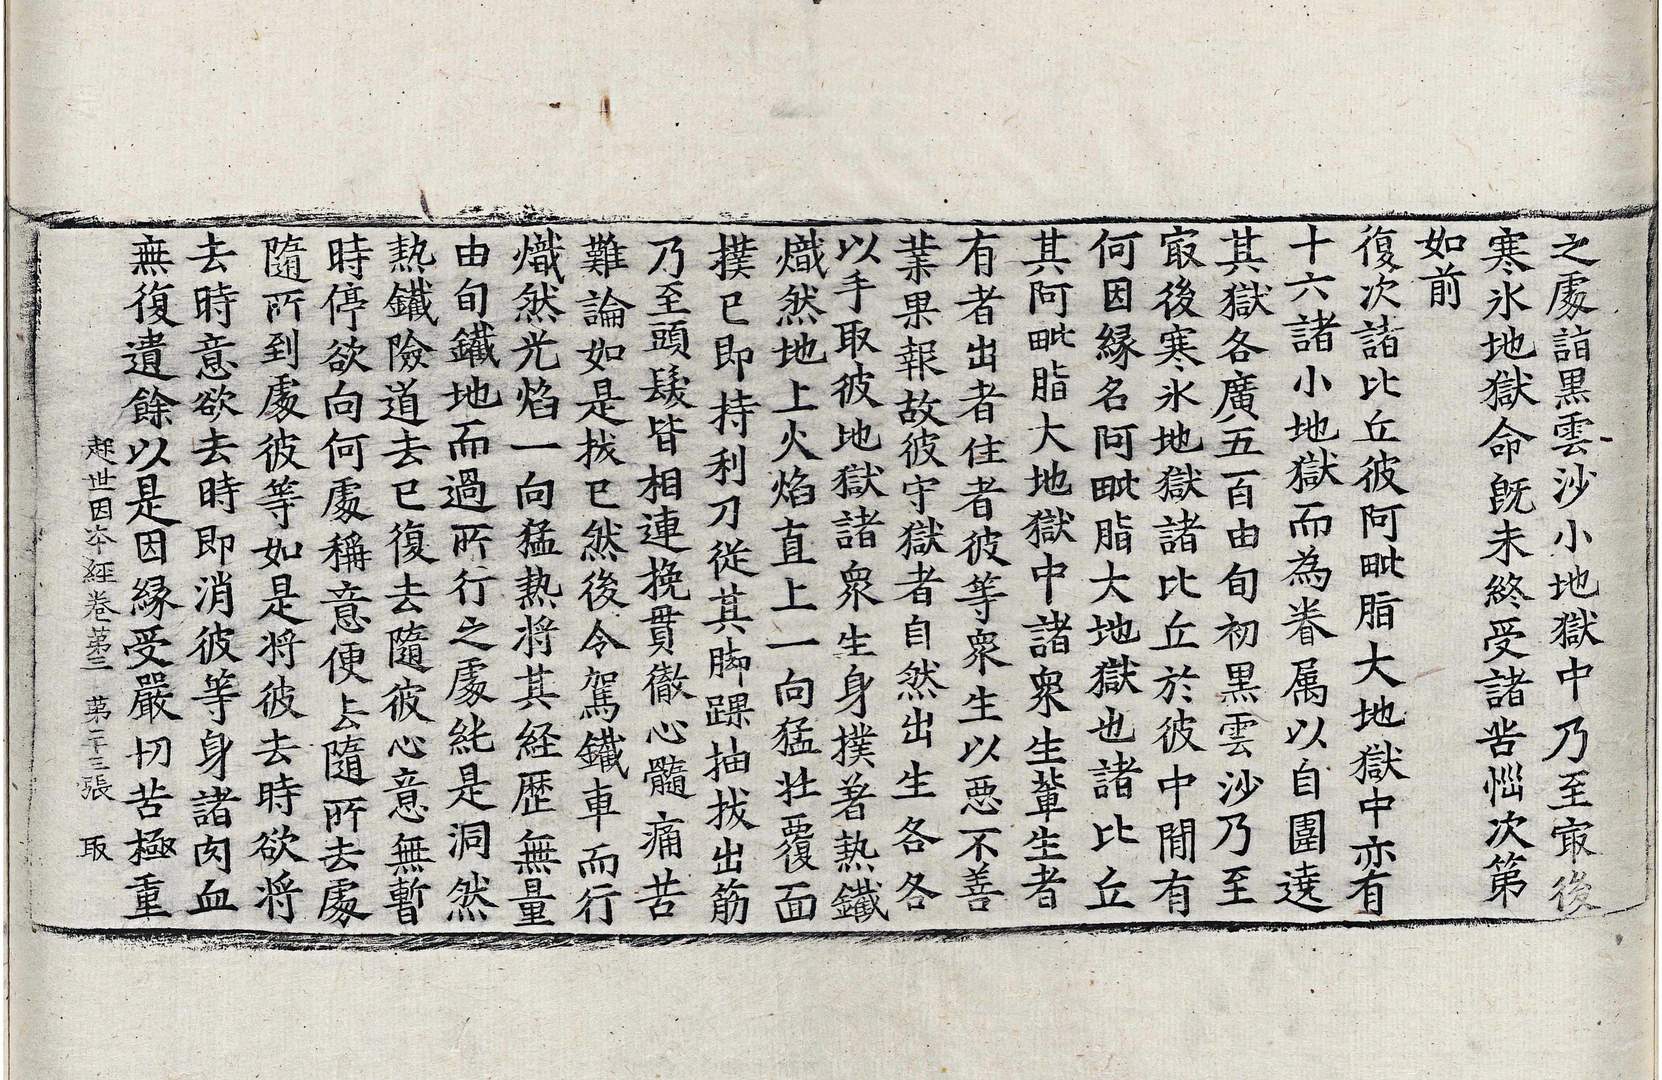 之處詣黒雲沙小地獄中乃至㝡後
寒氷地獄命旣未終受諸苦惱次第
如前
復次諸比丘彼阿毗脂大地獄中亦有
十六諸小地獄而為眷属以自圍遶
其獄各廣五百由旬初黒雲沙乃至
㝡後寒氷地獄諸比丘於彼中閒有
何因縁名阿毗脂大地獄也諸比丘
其阿毗脂大地獄中諸衆生軰生者
有者出者住者彼等衆生以惡不善
業果報故彼守獄者自然出生各各
以手取彼地獄諸衆生身撲著熱鐵
熾然地上火焰直上一向猛壮覆面
撲已即持利刀從其脚踝抽拔出筋
乃至頭髮皆相連挽貫徹心髓痛苦
難論如是拔已然後令駕鐵車而行
熾然光焰一向猛熱将其経歴無量
由旬鐵地而過所行之處純是洞然
熱鐵險道去已復去隨彼心意無暫
時停欲向何處稱意便去隨所去處
隨所到處彼等如是将彼去時欲将
去時意欲去時即消彼等身諸肉血
無復遺餘以是因縁受嚴切苦極重
起世因夲經卷第三 第二十三張 取